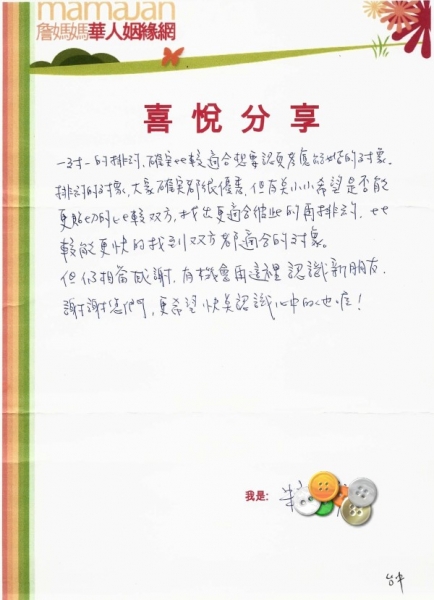 mamaJan
詹媽媽華人姻緣網
喜悅分享
一对一的排约,確实比較適合想要認真考慮結婚的对象.
排约的对象,大家確实都很優秀,但有差小小希望是否能
更貼切的比較双方,找出更適合彼此的再排约,比
較能更快的找到双方都適合的对象。
但仍相當感謝,有機會再這裡認識新朋友,
謝謝您們,更希望快莫認識心中的他/
我是:
台中